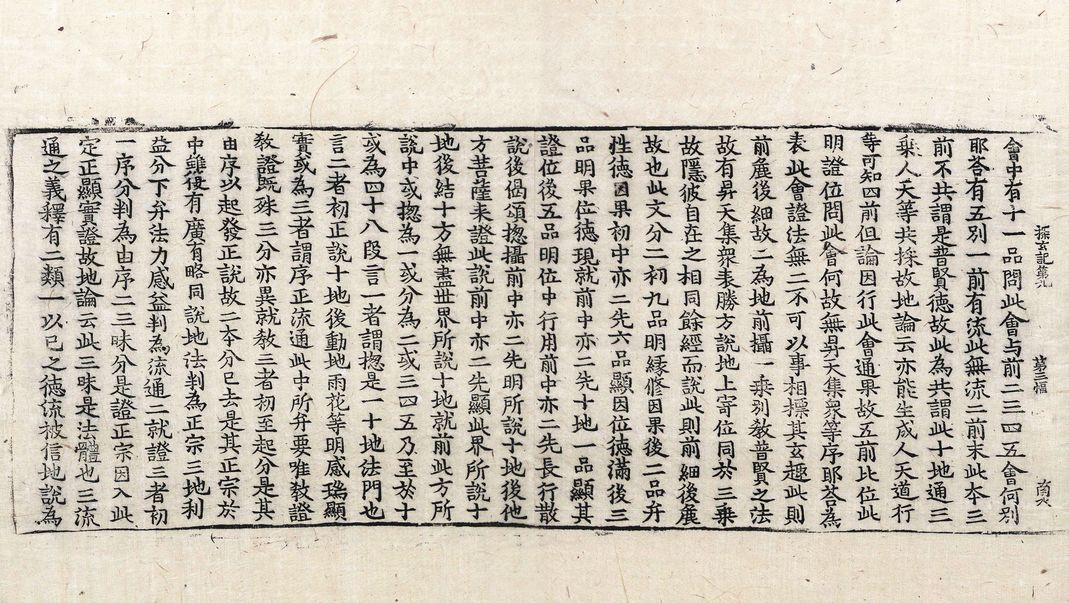 探玄記第九　第三幅　南水
會中有十一品問此會与前二三四五會何別
耶荅有五別一前有流此無流二前末此本三
前不共謂是普賢德故此為共謂此十地通三
乗人天等共採故地論云亦能生成人天道行
等可知四前但論因行此會通果故五前比位此
明證位問此會何故無昇天集衆等序耶荅為
表此會證法無二不可以事相標其玄趣此則
前麁後細故二為地前攝一乗別教普賢之法
故有昇天集衆表勝方說地上寄位同於三乗
故隱彼自在之相同餘經而說此則前細後麁
故也此文分二初九品明緣修因果後二品弁
性德因果初中亦二先六品顯因位德滿後三
品明果位德現就前中亦二先十地一品顯其
證位後五品明位中行用前中亦二先長行散
說後偈頌揔攝前中亦二先明所說十地後他
方菩薩来證此說前中亦二先顯此界所說十
地後結十方無盡世界所說十地就前此方所
說中或揔為一或分為二或三四五乃至於十
或為四十八段言一者謂揔是一十地法門也
言二者初正說十地後動地雨花等明感瑞顯
實或為三者謂序正流通此中所弁要唯教證
教證既殊三分亦異就教三者初至起分是其
由序以起發正說故二本分已去是其正宗於
中雖復有廣有略同說地法判為正宗三地利
益分下弁法力感益判為流通二就證三者初
一序分判為由序二三昧分是證正宗因入此
定正顯實證故地論云此三昧是法體也三流
通之義釋有二類一以己之德流被信地說為